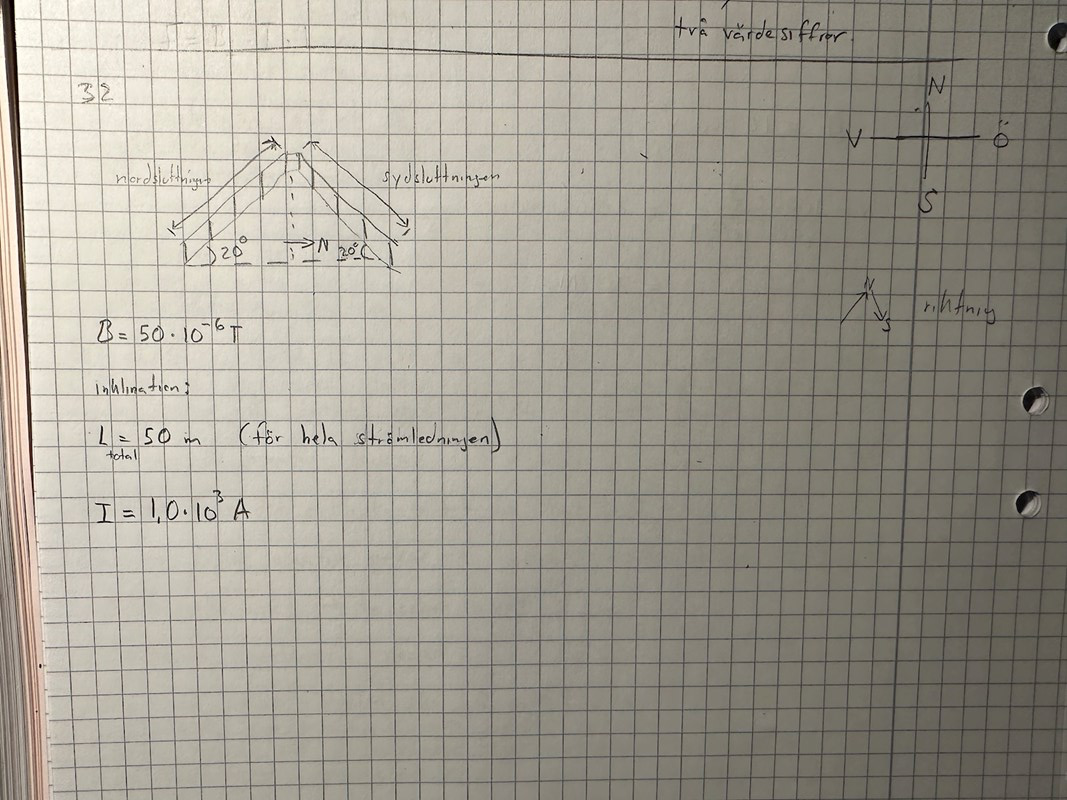 två värdesiffror
32
N
V Ö
S
nordsluttningen sydsluttningen
20° N 20°
N
S riktning
B = 50·10⁻⁶ T
inklination:
L = 50 m (för hela strömledningen)
total
I = 1,0·10³ A